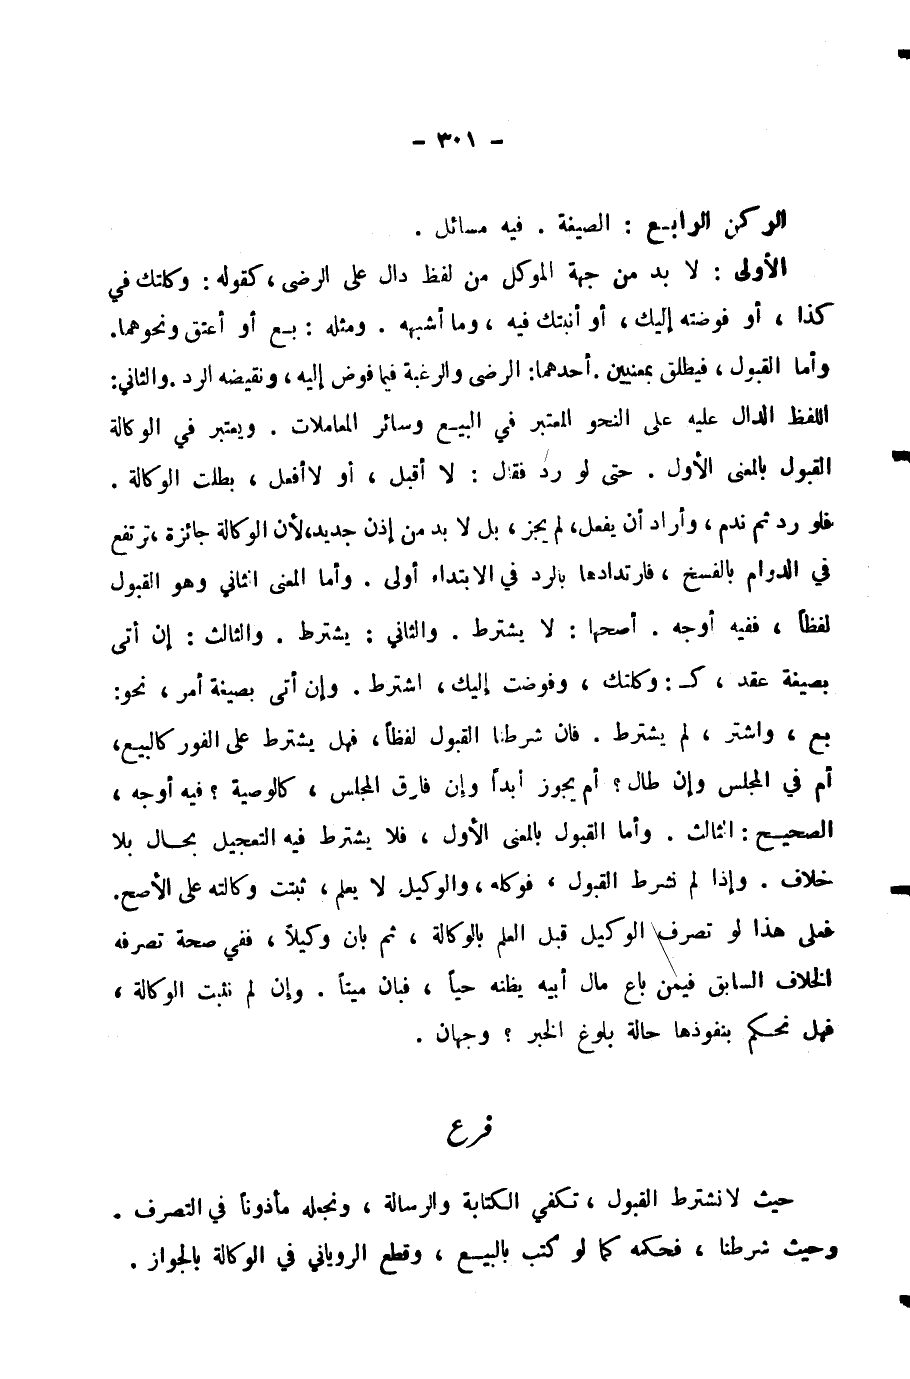 – ٣٠١ –
الركن الرابع : الصيغة . فيه مسائل .
الأولى : لا بد من جهة الموكل من لفظ دال على الرضى ، كقوله : وكلتك في
كذا ، أو فوضته إليك ، أو أنبتك فيه ، وما أشبهه . ومثله : بع أو أعتق ونحوهما.
وأما القبول ، فيطلق بمعنيين . أحدهما: الرضى والرغبة فيما فوض إليه ، ونقيضه الرد . والثاني:
اللفظ الدال عليه على النحو المعتبر في البيع وسائر المعاملات . ويعتبر في الوكالة
القبول بالمعنى الأول . حتى لو ردَّ فقال : لا أقبل ، أو لا أفعل ، بطلت الوكالة .
فلو رد ثم ندم ، وأراد أن يفعل، لم يجز ، بل لا بد من إذن جديد،لأن الوكالة جائزة ،ترتفع
في الدوام بالفسخ ، فارتدادها بالرد في الابتداء أولى . وأما المعنى الثاني وهو القبول
لفظاً ، ففيه أوجه . أصحها : لا يشترط . والثاني : يشترط . والثالث : إن أتى
بصيغة عقد ، كـ : وكلتك ، وفوضت إليك ، اشترط . وإن أتى بصيغة أمر ، نحو:
بع ، واشتر ، لم يشترط . فان شرطنا القبول لفظاً ، فهل يشترط على الفور كالبيع،
أم في المجلس وإن طال ؟ أم يجوز أبداً وإن فارق المجلس ، كالوصية ؟ فيه أوجه ،
الصحيح : الثالث . وأما القبول بالمعنى الأول ، فلا يشترط فيه التعجيل بحال بلا
خلاف . وإذا لم نشرط القبول ، فوكله ، والوكيل لا يعلم ، ثبتت وكالته على الأصح.
فعلى هذا لو تصرف الوكيل قبل العلم بالوكالة ، ثم بان وكيلاً ، ففي صحة تصرفه
الخلاف السابق فيمن باع مال أبيه يظنه حياً ، فبان ميتاً . وإن لم نثبت الوكالة ،
فهل نحكم بنفوذها حالة بلوغ الخبر ؟ وجهان .
فرع
حيث لا نشترط القبول ، تكفي الكتابة والرسالة ، ونجعله مأذوناً في التصرف .
وحيث شرطنا ، فحكمه كما لو كتب بالبيع ، وقطع الروياني في الوكالة بالجواز .